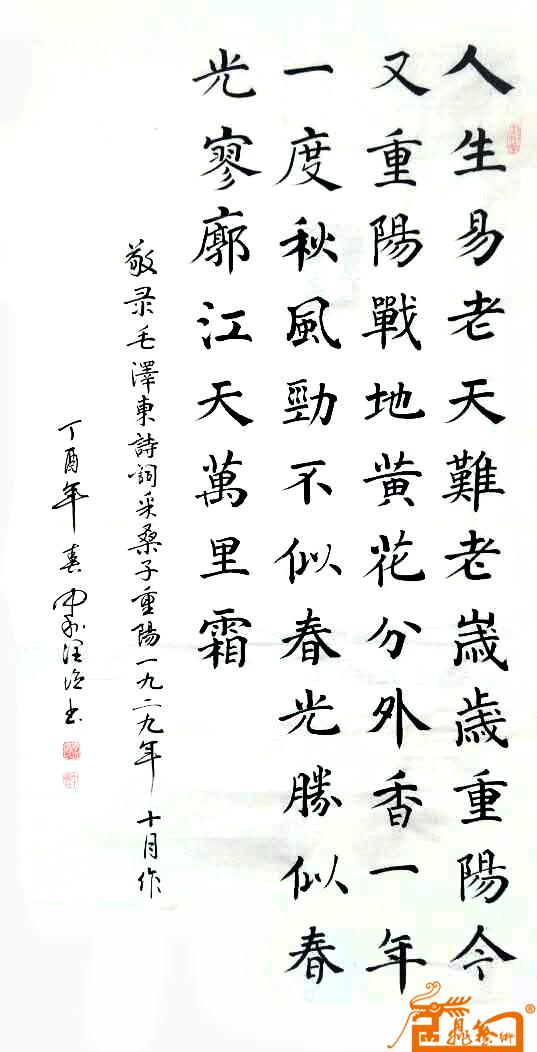 人生易老天難老歲歲重陽今
又重陽戰地黄花分外香一年
一度秋風勁不似春光勝似春
光寥廓江天萬里霜
敬录毛澤東詩詞采桑子重陽一九二九年十月作
丁酉年春
书